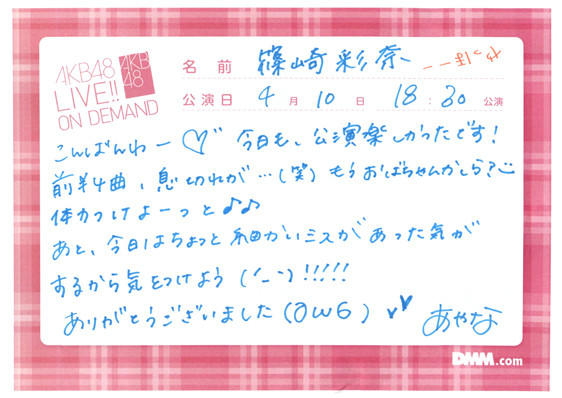 AKB48
LIVE!!
ON DEMAND
AKB
48
名前 篠崎彩奈
公演日 4月10日 18:30公演
こんばんわー♡ 今日も、公演楽しかったです!
前半4曲、息切れが…(笑)もうおばちゃんかしら?
体力つけよーっと♪♪
あと、今日はちょっと細かいミスがあった気が
するから気をつけよう('_-)!!!!!
ありがとうございました(OwG) あやな
DMM.com